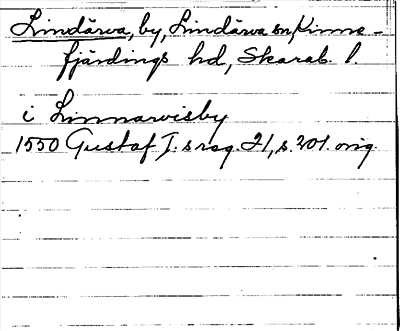 Lindärva, by, Lindärva sn, Kinne-
fjärdings hd, Skarab. l.
i Linnarvisby
1550 Gustaf I:s reg. 21, s. 201. orig.